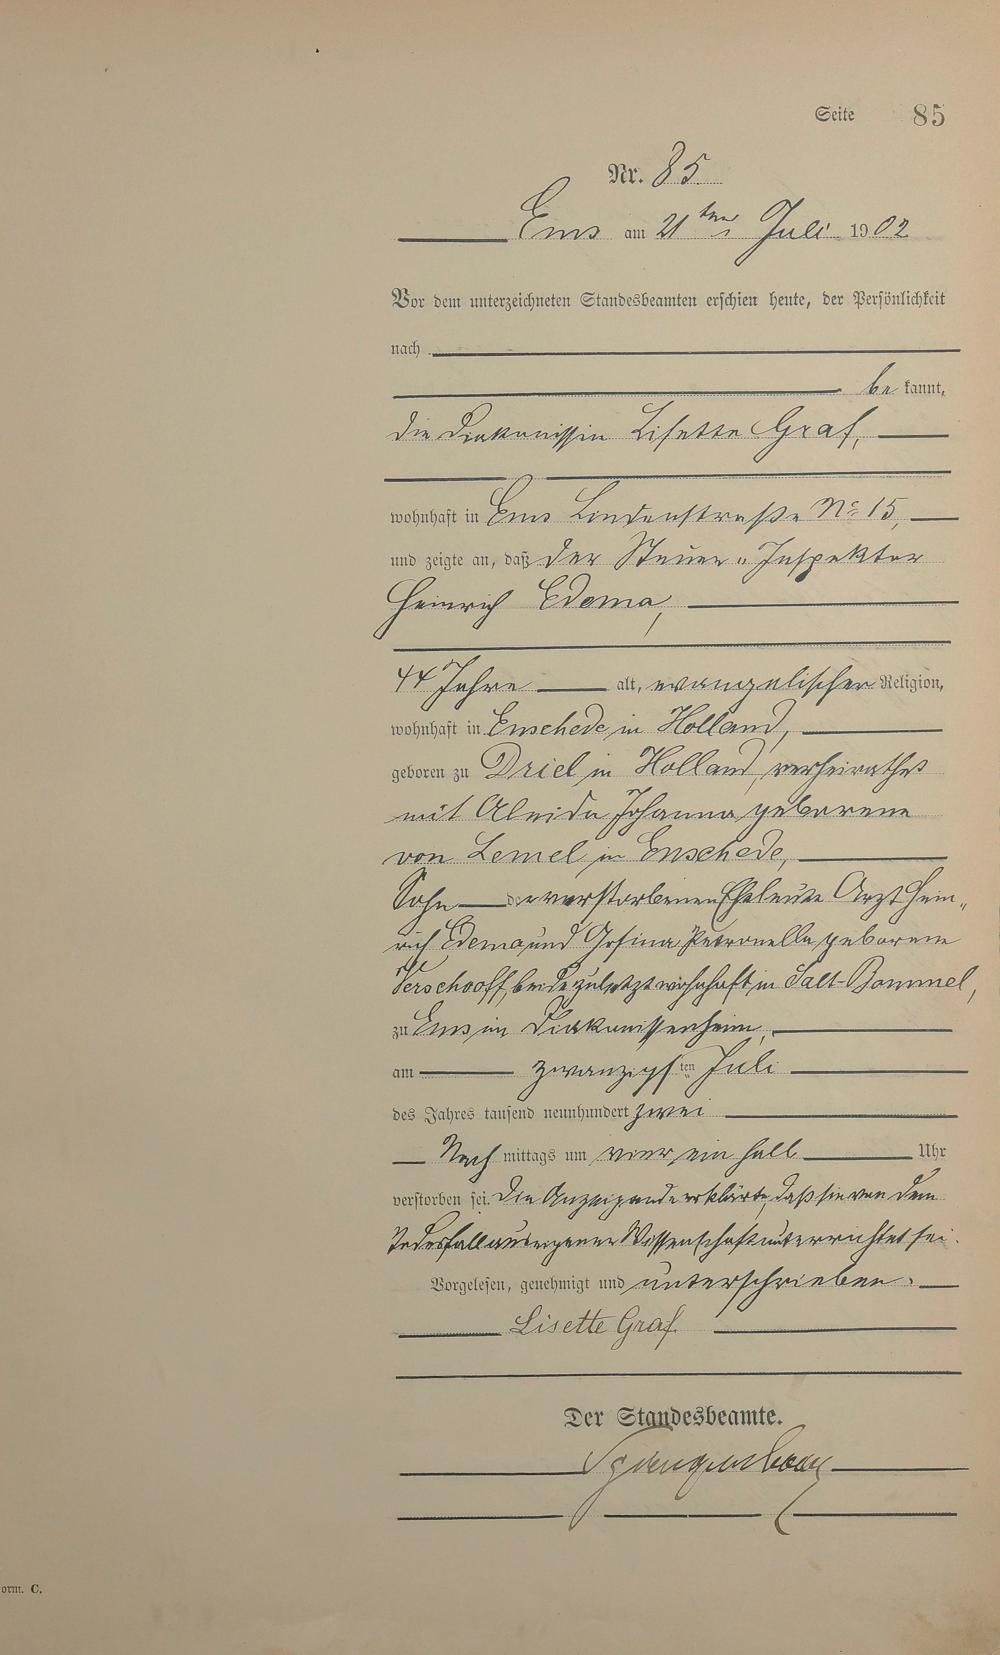 Seite 85
Nr. 85
Ems am 21ten Juli 1902
Vor dem unterzeichneten Standesbeamten erschien heute, der Persönlichkeit
nach
be kannt,
die Diakonissin Lisette Graf,
wohnhaft in Ems Lindenstraße No 15,
und zeigte an, daß der Steuer-Inspektor
Heinrich Edema,
44 Jahre alt, evangelischer Religion,
wohnhaft in Enschede in Holland,
geboren zu Driel in Holland, verheirathet
mit Aleida Johanna geborene
von Lemel in Enschede,
Sohn der verstorbenen Eheleute Arzt Hein-
rich Edema und Gosina Petronella geborene
Verschooff, beide zuletzt wohnhaft in Salt-Bommel,
zu Ems im Diakonissenheim,
am zwanzigsten Juli
des Jahres tausend neunhundert zwei
Nach mittags um vier ein halb Uhr
verstorben sei. Die Anzeigende erklärte, daß sie von dem
Todesfall aus eigener Wissenschaft unterrichtet sei.
Vorgelesen, genehmigt und unterschrieben.
Lisette Graf
Der Standesbeamte.
orm. C.